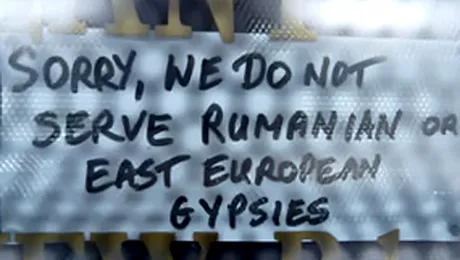 SORRY, WE DO NOT
SERVE RUMANIAN OR
EAST EUROPEAN
GYPSIES